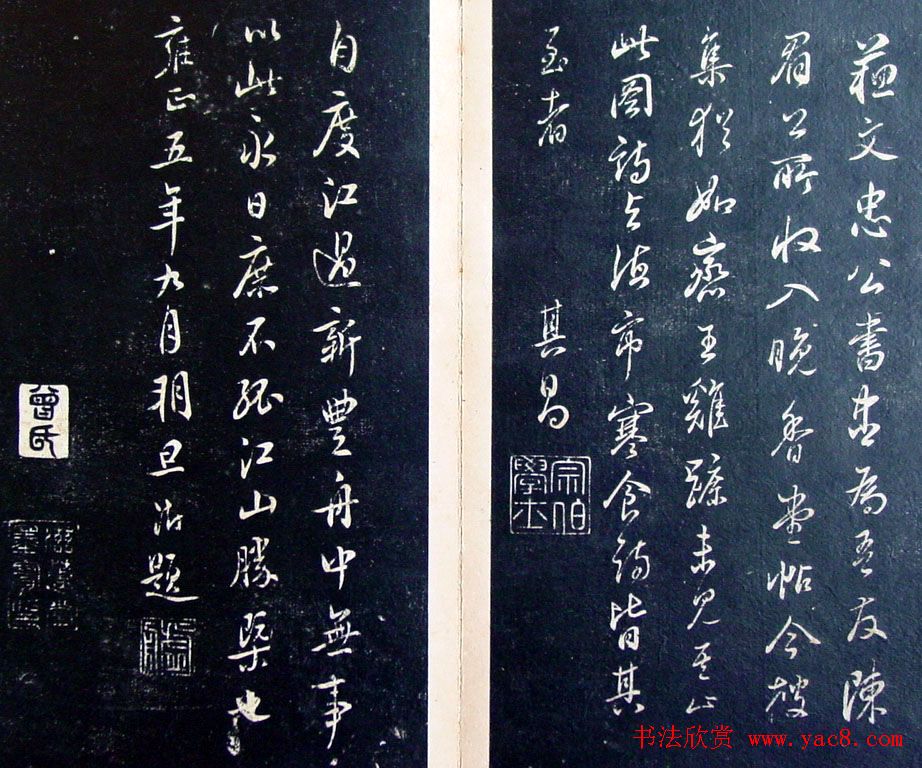 蘓文忠公書為吾友陳
眉公所收入晚香堂帖今
集猶如齊王雞蹠未見其止
此圖詩与寒食詩皆其
至者 其昌
宗伯學士
自度江過新豐舟中無事
以此永日庶不江山勝槩也
雍正五年九月朔旦澍題
曾氏
书法欣赏 www.yac8.com